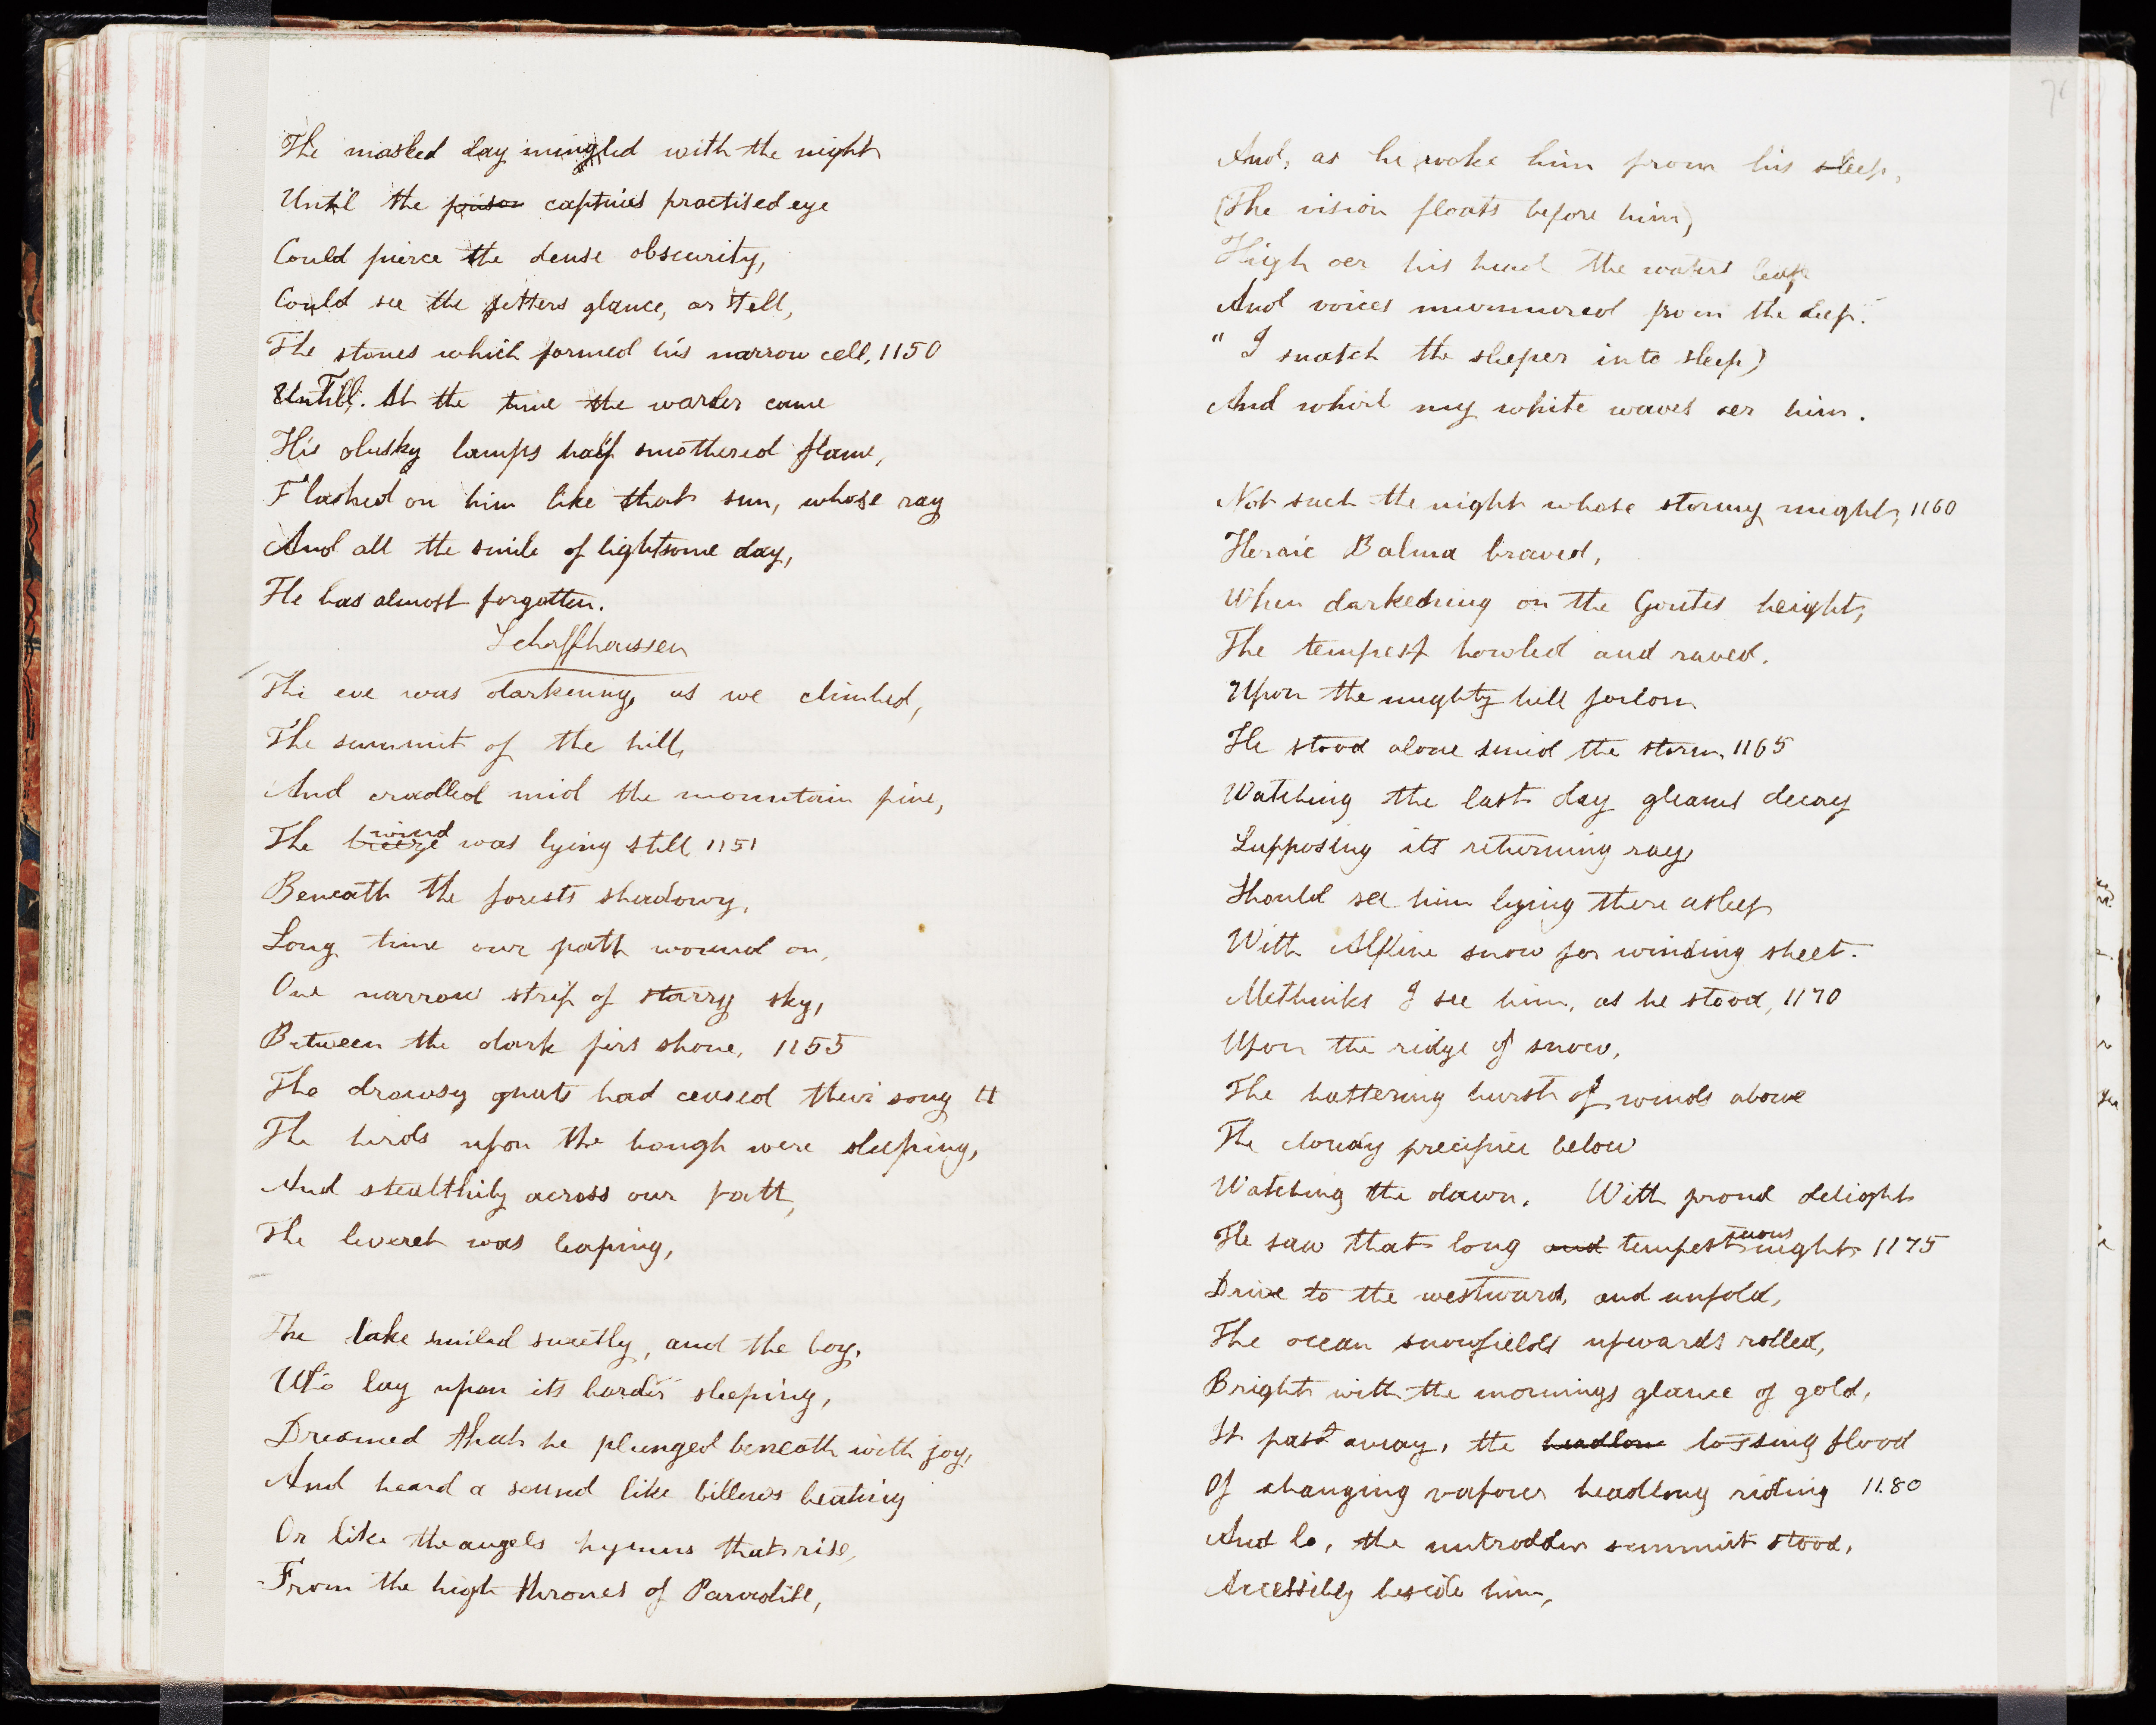 The masked day mingled with the night
Until the prison captives practised eye
Could pierce the dense obscurity,
Could see the fetters glance, or tell,
The stones which formed his narrow cell, 1150
Until. At the time the warder came
His dusky lamps half smothered flame,
Flashed on him like that sun, whose ray
And all the smile of lightsome day,
He has almost forgotten.
Schaffhaussen
The eve was darkening, as we climbed,
The summit of the hill,
And cradled mid the mountain pine,
The breeze wind was lying still 1151
Beneath the forests shadowy,
Long time our path wound on,
One narrow strip of starry sky,
Between the dark firs shone, 1155
The drowsy gnats had ceased their song
The birds upon the bough were sleeping,
And stealthily across our path,
The leveret was leaping,
The lake smiled sweetly, and the boy,
Who lay upon its border sleeping,
Dreamed that he plunged beneath with joy,
And heard a sound like billows beating
Or like the angels hymns that rise,
From the high thrones of Paradise,
And, as he woke him from his sleep,
(The vision floats before him)
High oer his head the waters leap
And voices murmured from the deep.
" I snatch the sleeper into sleep)
And whirl my white waves oer him.
Not such the night whose stormy might, 1160
Heroic Balma braved,
When darkedning on the Goutes height,
The tempest howled and raved.
Upon the mighty hill forlorn
He stood alone amid the storm, 1165
Watching the last day gleams decay
Supposing its returning ray,
Should see him lying there asleep
With Alpine snow for winding sheet.
Methinks I see him, as he stood, 1170
Upon the ridge of snow,
The battering burst of winds above
The cloudy precipice below
Watching the dawn. With proud delight
He saw that long and tempestuous night 1175
Drive to the westward, and unfold,
The ocean snowfields upwards rolled,
Bright with the mornings glance of gold,
It past away, the headlon tossing flood
Of changing vapour headlong riding 1180
And lo, the untrodden summit stood,
Accessibly beside him,